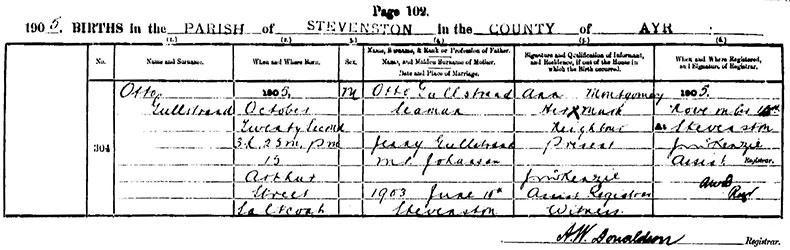 Page 102.
1905. BIRTHS in the PARISH of STEVENSTON in the COUNTY of AYR
(1.) (2.) (3.) (4.) (5.) (6.)
No. Name and Surname. When and Where Born. Sex. Name, Surname, & Rank or Profession of Father. Name, and Maiden Surname of Mother. Date and Place of Marriage. Signature and Qualification of Informant, and Residence, if out of the House in which the Birth occurred. When and Where Registered, and Signature of Registrar.
Otto 1905, M Otto Gullstrand Ann Montgomery 1905,
Gullstrand October Seaman Her X Mark November
Twenty Second Neighbour At Stevenston
304 3h. 25m. PM Jenny Gullstrand Present Jn McKenzie
15 M.S. Johansen Assist Registrar.
Arthur Jn McKenzie AWD
Street 1903 June Assist Registrar Regr
Saltcoats Stevenston Witness.
A.W. Donaldson Registrar.